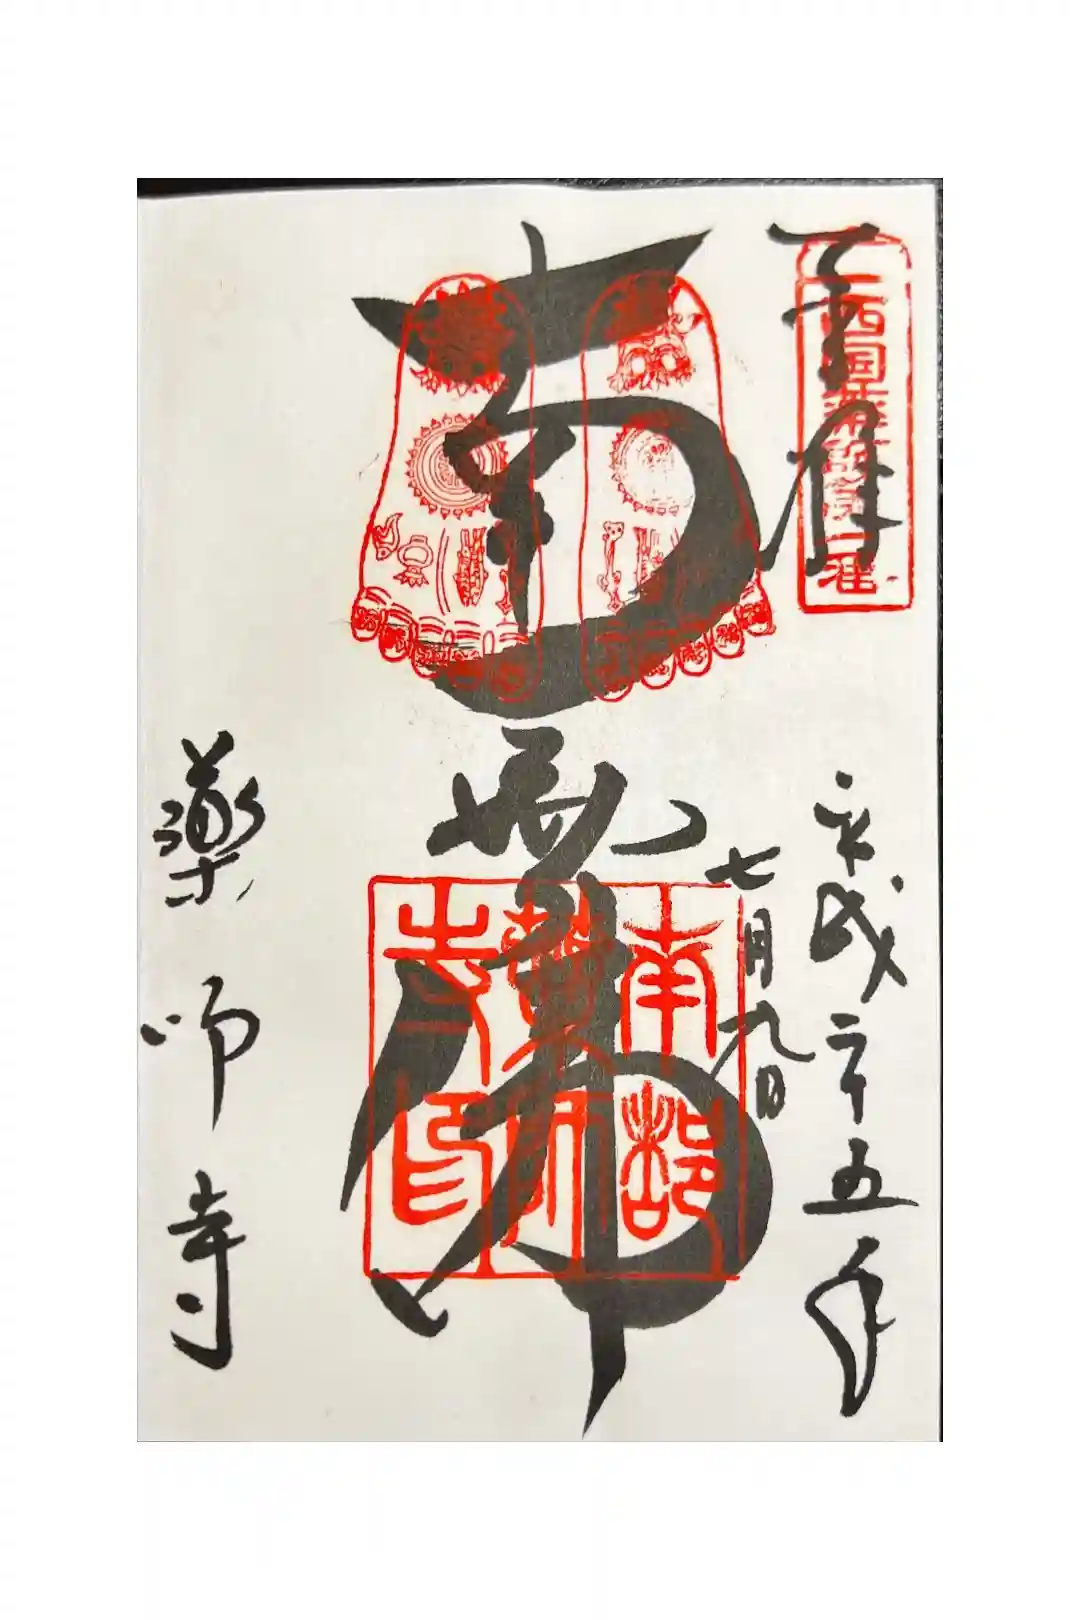 奉拝
西国薬師第一
平成二十五年
七月九日
南無佛
南都
藥師
寺印
藥師寺